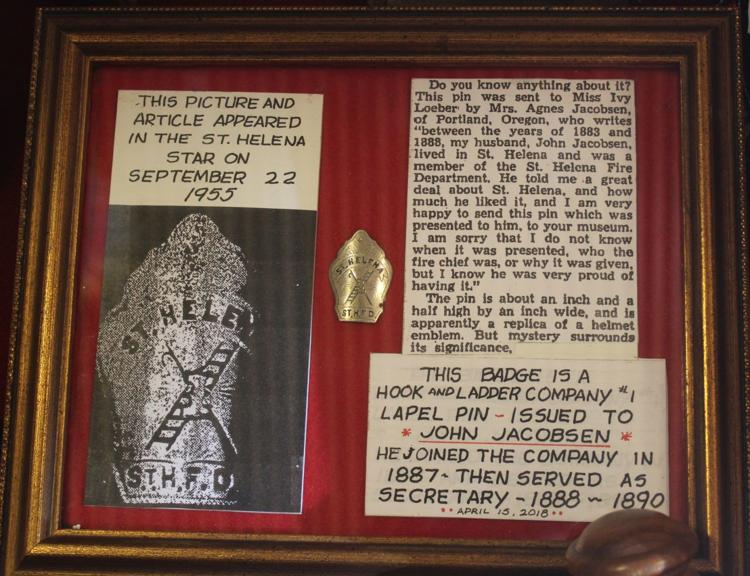 THIS PICTURE AND
ARTICLE APPEARED
IN THE ST. HELENA
STAR ON
SEPTEMBER 22
1955
ST. HELEN
S.T.H.F.D.
ST. HELENA
ST.H.F.D.
Do you know anything about it?
This pin was sent to Miss Ivy
Loeber by Mrs. Agnes Jacobsen,
of Portland, Oregon, who writes
"between the years of 1883 and
1888, my husband, John Jacobsen,
lived in St. Helena and was a
member of the St. Helena Fire
Department. He told me a great
deal about St. Helena, and how
much he liked it, and I am very
happy to send this pin which was
presented to him, to your museum.
I am sorry that I do not know
when it was presented, who the
fire chief was, or why it was given,
but I know he was very proud of
having it."
The pin is about an inch and a
half high by an inch wide, and is
apparently a replica of a helmet
emblem. But mystery surrounds
its significance,
THIS BADGE IS A
HOOK AND LADDER COMPANY #1
LAPEL PIN - ISSUED TO
* JOHN JACOBSEN *
HE JOINED THE COMPANY IN
1887 - THEN SERVED AS
SECRETARY - 1888 ~ 1890
•• APRIL 15, 2018 ••